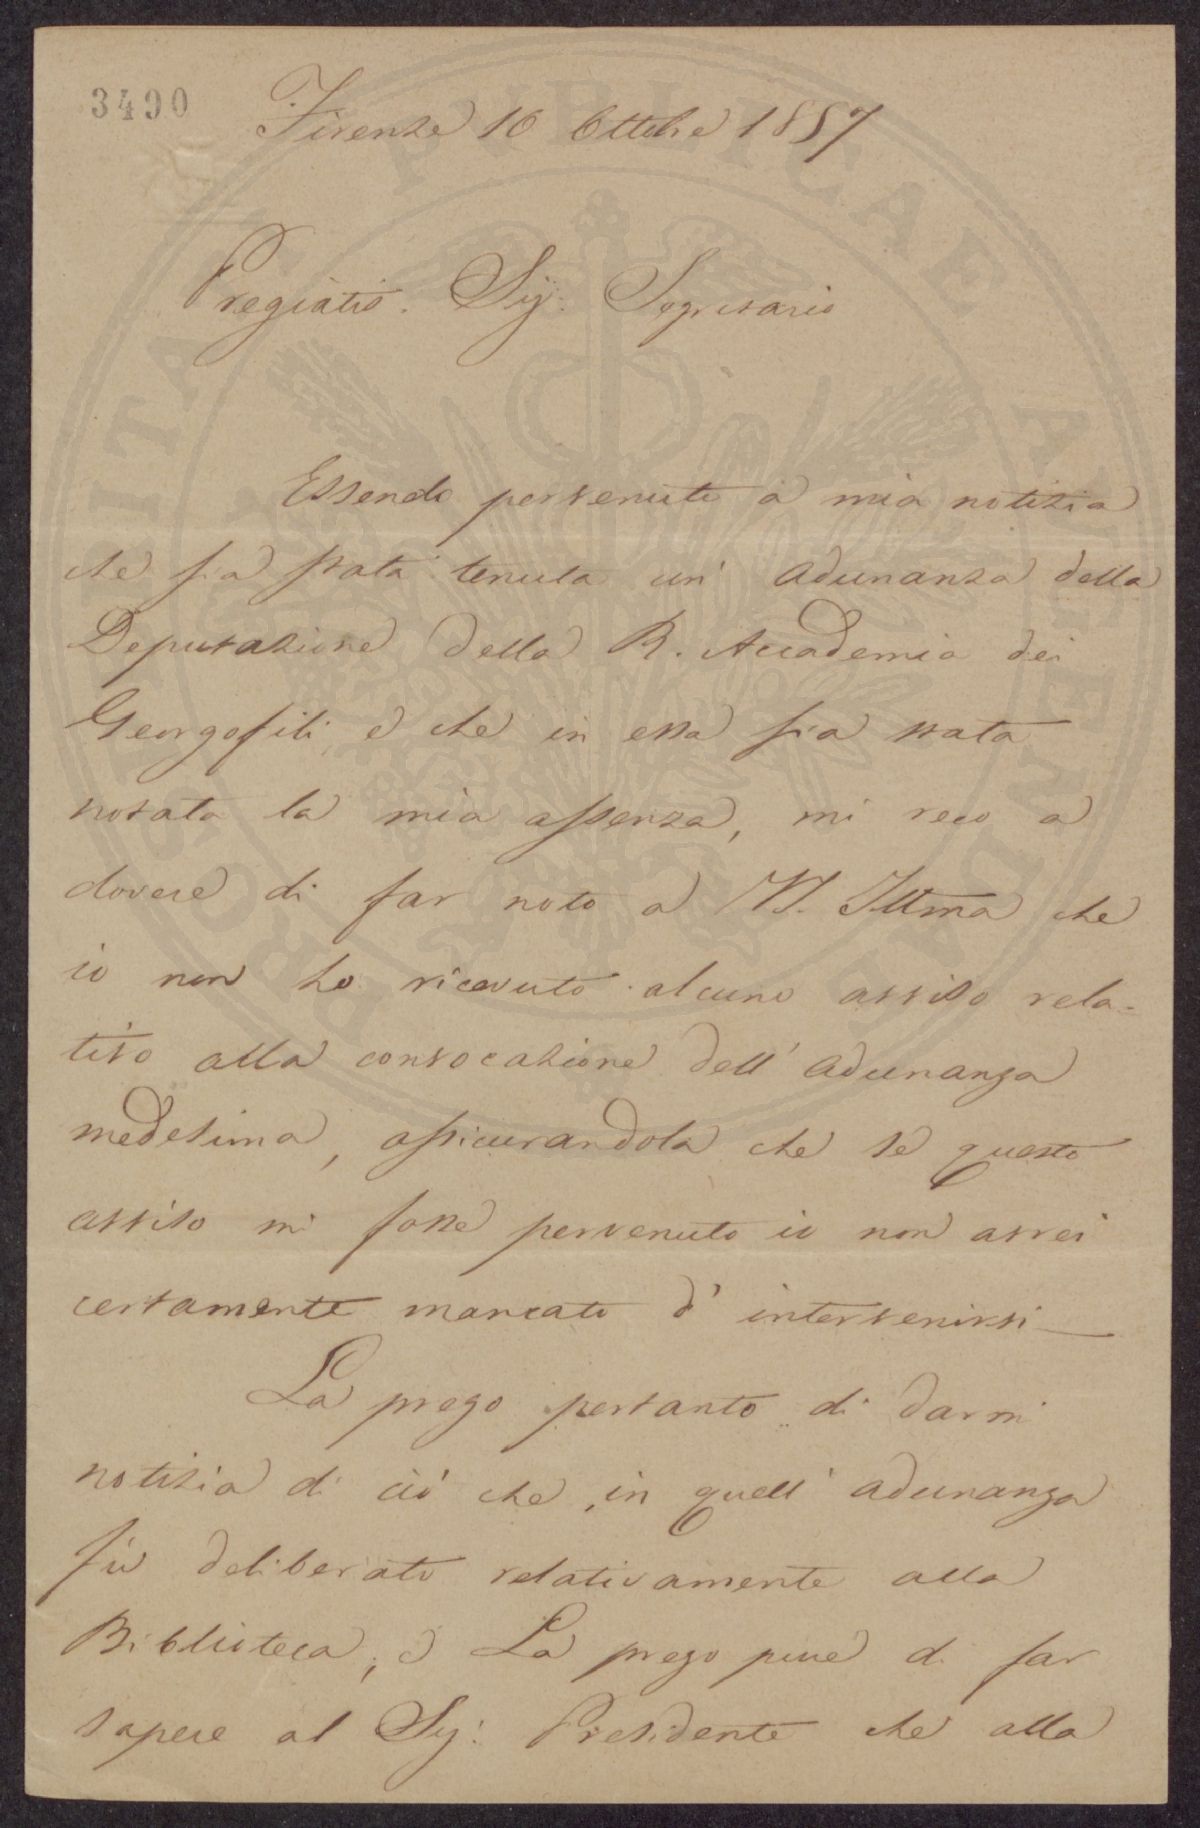 3490
Firenze 16 Ottobre 1857
Pregiatis. Sig. Segretario
Essendo pervenuto a mia notizia
che sia stata tenuta un' adunanza della
Deputazione della R. Accademia dei
Georgofili, e che in essa sia stata
notata la mia assenza, mi reco a
dovere di far noto a VS. Illma che
io non ho ricevuto alcuno avviso rela-
tivo alla convocazione dell' adunanza
medesima, assicurandola che se questo
avviso mi fosse pervenuto io non avrei
certamente mancato d' intervenirvi
La prego pertanto di darmi
notizia di ciò che in quell' adunanza
fù deliberato relativamente alla
Biblioteca, e La prego pure di far
sapere al Sig: Presidente che alla